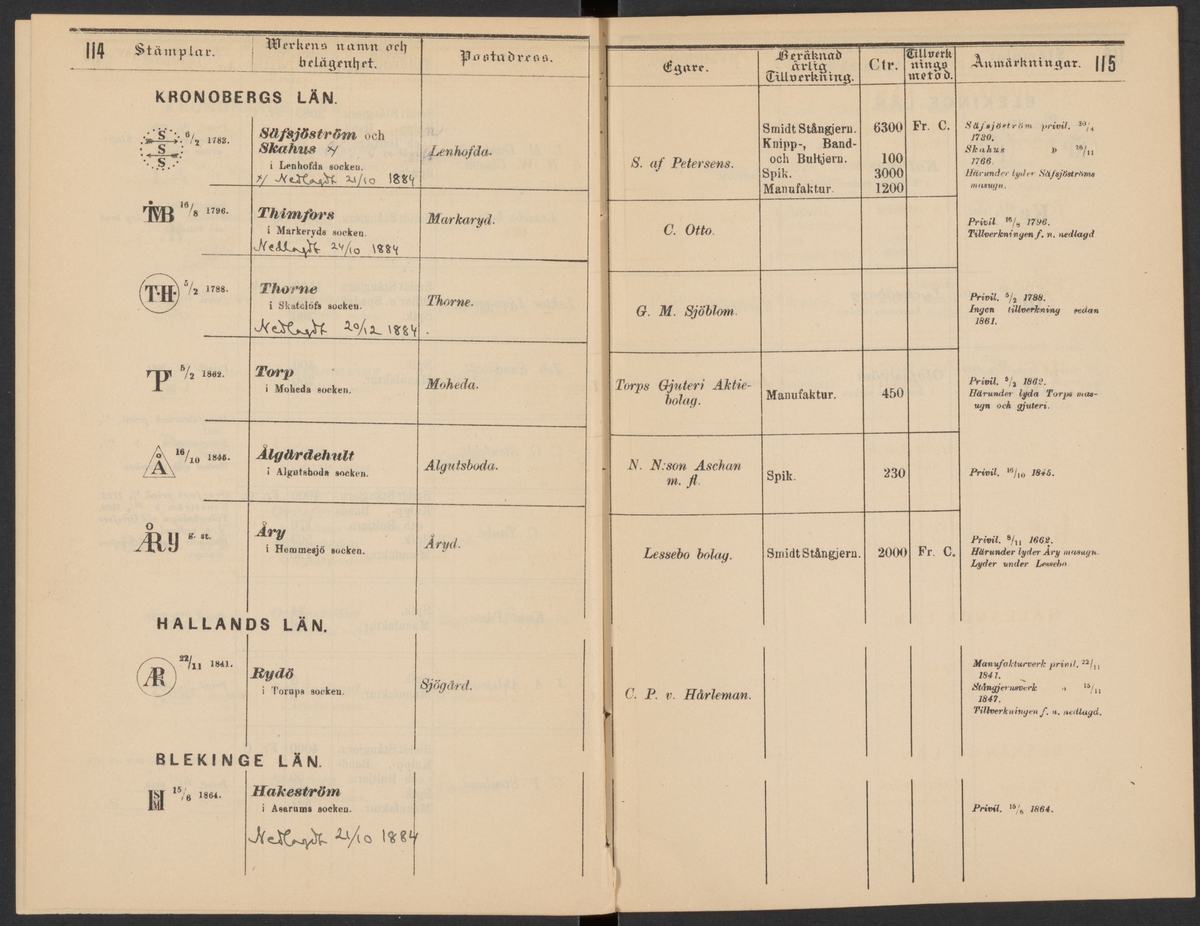 114
Stämplar.
Werkens namn och
belägenhet.
Postadress.
KRONOBERGS LÄN.
S
S
S
6/2 1782.
Säfsjöström och
Skahus x/
i Lenhofda socken.
x/ Nedlagdt 21/10 1884
Lenhofda.
TMB 16/8 1796.
Thimfors
i Markeryds socken.
Nedlagdt 24/10 1884
Markaryd.
T·H· 5/2 1788.
Thorne
i Skatelöfs socken.
Nedlagdt 20/12 1884.
Thorne.
TP 5/2 1862.
Torp
i Moheda socken.
Moheda.
Å 16/10 1845.
Ålgärdehult
i Algutsboda socken.
Algutsboda.
ÅRY g. st.
Åry
i Hemmesjö socken.
Åryd.
HALLANDS LÄN.
ÆR 22/11 1841.
Rydö
i Torups socken.
Sjögård.
BLEKINGE LÄN.
15/6 1864.
Hakeström
i Asarums socken.
Nedlagdt 21/10 1884
Egare.
Beräknad
årlig
Tillverkning.
Ctr.
Tillverk
nings
metod.
Anmärkningar.
115
S. af Petersens.
Smidt Stångjern. 6300 Fr. C.
Knipp-, Band-
och Bultjern. 100
Spik. 3000
Manufaktur. 1200
Säfsjöström privil. 30/4
1730.
Skahus „ 26/11
1766.
Härunder lyder Säfsjöströms
masugn.
C. Otto.
Privil. 16/8 1796.
Tillverkningen f. n. nedlagd
G. M. Sjöblom.
Privil. 5/2 1788.
Ingen tillverkning sedan
1861.
Torps Gjuteri Aktie-
bolag.
Manufaktur. 450
Privil. 5/2 1862.
Härunder lyda Torps mas-
ugn och gjuteri.
N. N:son Aschan
m. fl.
Spik. 230
Privil. 16/10 1845.
Lessebo bolag.
Smidt Stångjern. 2000 Fr. C.
Privil. 8/11 1662.
Härunder lyder Åry masugn.
Lyder under Lessebo.
C. P. v. Hårleman.
Manufakturverk privil. 22/11
1841.
Stångjernsverk „ 15/11
1847.
Tillverkningen f. n. nedlagd.
Privil. 15/6 1864.